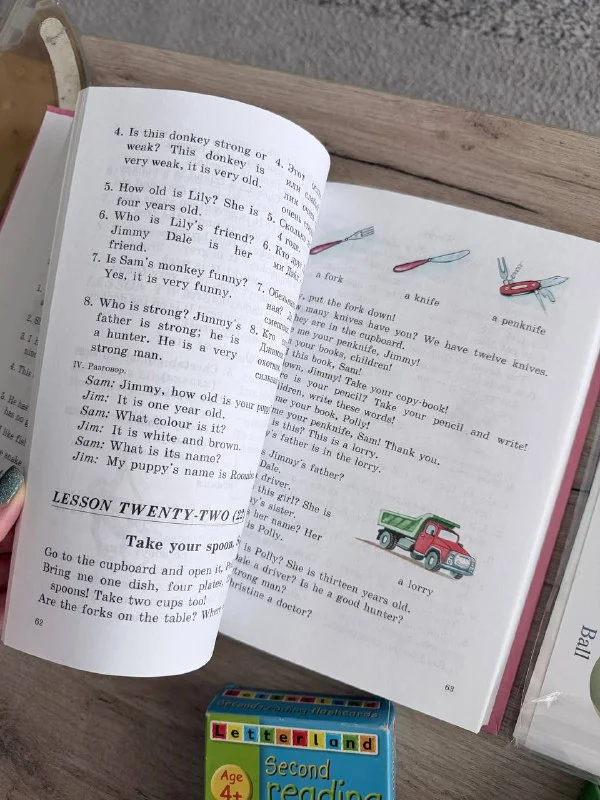 4. Is this donkey strong or
weak? This donkey is
very weak, it is very old.
5. How old is Lily? She is
four years old.
6. Who is Lily's friend?
Jimmy Dale is her
friend.
7. Is Sam's monkey funny?
Yes, it is very funny.
8. Who is strong? Jimmy's
father is strong; he is
a hunter. He is a very
strong man.
4. Этот
или
5. Сколько
4 года.
6. Кто
7.
8. Кто
IV. Разговор.
Sam: Jimmy, how old is your
Jim: It is one year old.
Sam: What colour is it?
Jim: It is white and brown.
Sam: What is its name?
Jim: My puppy's name is
LESSON TWENTY-TWO (22
Take your spoon
Go to the cupboard and open it,
Bring me one dish, four plates,
spoons! Take two cups too!
Are the forks on the table?
62
a fork
a knife
a penknife
put the fork down!
many knives have you? We have twelve knives.
they are in the cupboard.
me your penknife, Jimmy!
your books, children!
this book, Sam!
Jimmy! Take your copy-book!
is your pencil? Take your pencil and write!
write these words!
me your book, Polly!
your penknife, Sam! Thank you.
is this? This is a lorry.
father is in the lorry.
is Jimmy's father?
Dale.
driver.
this girl? She is
sister.
her name? Her
is Polly.
is Polly? She is thirteen years old.
a driver? Is he a good hunter?
strong man?
Christine a doctor?
a lorry
63
Ball
Second reading flashcards
Letterland
Age
4+
Second
reading